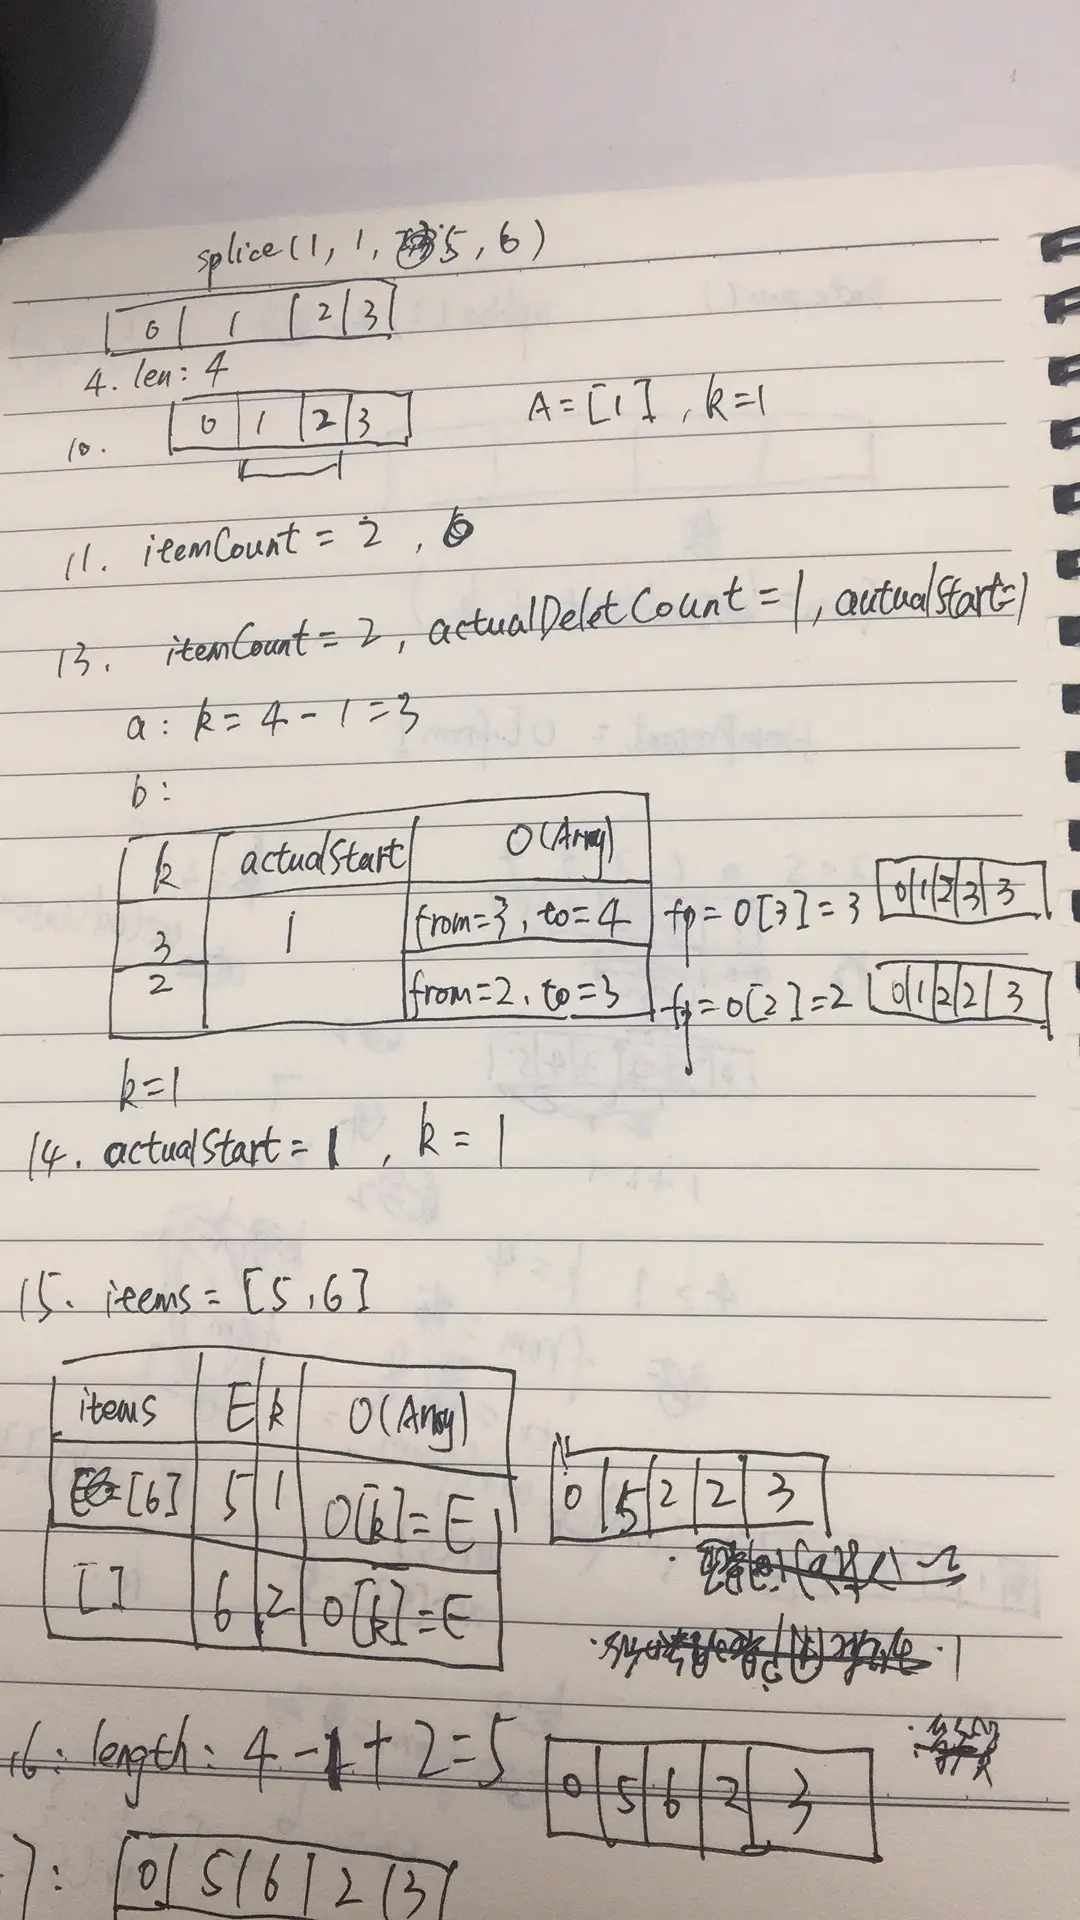 splice(1, 1, 5, 6)
0 1 2 3
4. len: 4
10. 0 1 2 3 A=[1], k=1
11. itemCount = 2,
13. itemCount = 2, actualDeletCount = 1, autualStart=1
a: k= 4 - 1 = 3
b:
k actualStart O(Array)
3 1 from=3, to=4 fp= O[3]=3 0 1 2 3 3
2 from=2, to=3 fp= O[2]=2 0 1 2 2 3
k=1
14. actualStart = 1, k = 1
15. items = [5, 6]
items E k O(Array)
[6] 5 1 O[k]= E 0 5 2 2 3
[] 6 2 O[k]=E
16. length: 4-1+2=5 0 5 6 2 3
: 0 5 6 2 3